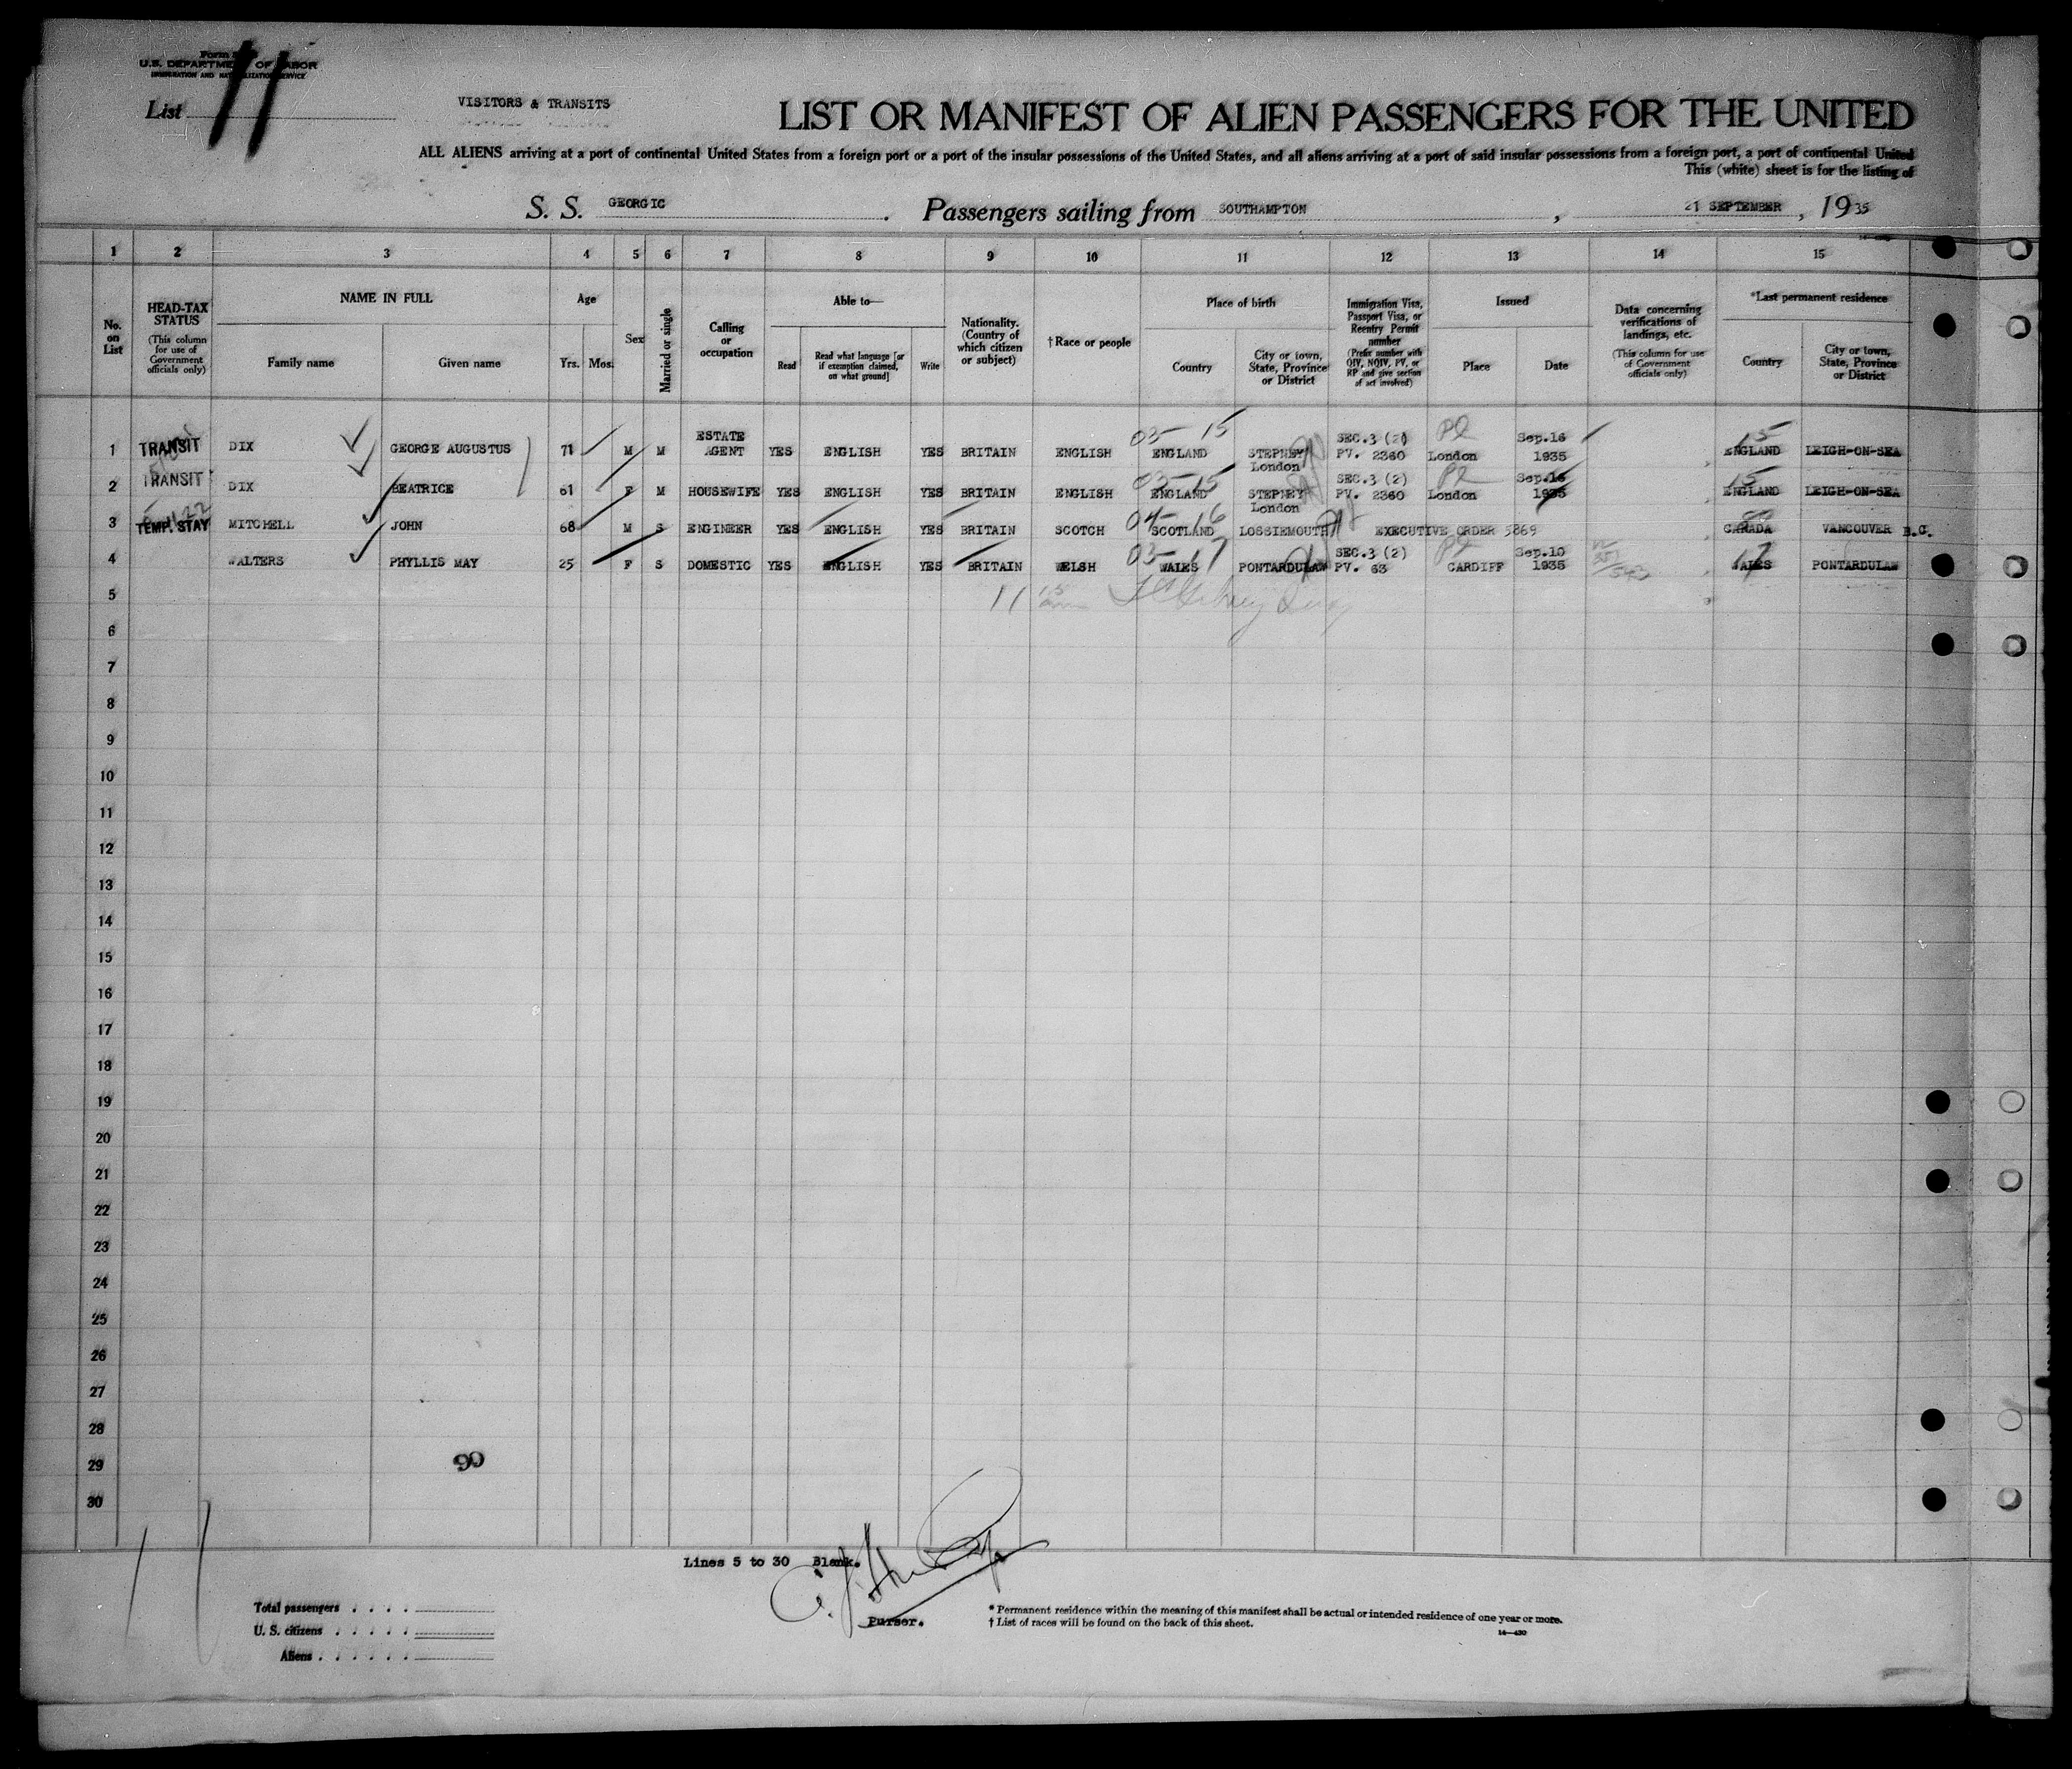 U.S. DEPARTMENT OF LABOR
IMMIGRATION AND NATURALIZATION SERVICE
List 11
VISITORS & TRANSITS
LIST OR MANIFEST OF ALIEN PASSENGERS FOR THE UNITED
ALL ALIENS arriving at a port of continental United States from a foreign port or a port of the insular possessions of the United States, and all aliens arriving at a port of said insular possessions from a foreign port, a port of continental United
This (white) sheet is for the listing of
S. S. GEORGIC. Passengers sailing from SOUTHAMPTON, 21 SEPTEMBER, 1935
1 2 3 4 5 6 7 8 9 10 11 12 13 14 15
No. on List
HEAD-TAX STATUS (This column for use of Government officials only)
NAME IN FULL
Family name
Given name
Age
Yrs. Mos.
Sex
Married or single
Calling or occupation
Able to—
Read
Read what language [or if exemption claimed, on what ground]
Write
Nationality. (Country of which citizen or subject)
†Race or people
Place of birth
Country
City or town, State, Province or District
Immigration Visa, Passport Visa, or Reentry Permit number (Prefix number with QIV, NQIV, PV, or RP and give section of act involved)
Issued
Place
Date
Data concerning verifications of landings, etc. (This column for use of Government officials only)
*Last permanent residence
Country
City or town, State, Province or District
1 TRANSIT DIX GEORGE AUGUSTUS 71 M M ESTATE AGENT YES ENGLISH YES BRITAIN ENGLISH 03 15 ENGLAND STEPNEY London SEC.3 (2) PV. 2360 London Sep.16 1935 15 ENGLAND LEIGH-ON-SEA
2 TRANSIT DIX BEATRICE 61 F M HOUSEWIFE YES ENGLISH YES BRITAIN ENGLISH 03-15 ENGLAND STEPNEY London SEC.3 (2) PV. 2360 London Sep.16 1935 15 ENGLAND LEIGH-ON-SEA
3 TEMP. STAY MITCHELL JOHN 68 M S ENGINEER YES ENGLISH YES BRITAIN SCOTCH 04-16 SCOTLAND LOSSIEMOUTH EXECUTIVE ORDER 5869 CANADA VANCOUVER B.C.
4 WALTERS PHYLLIS MAY 25 F S DOMESTIC YES ENGLISH YES BRITAIN WELSH 03 17 WALES PONTARDULAW SEC.3 (2) PV. 63 CARDIFF Sep.10 1935 17 WALES PONTARDULAW
5 11
6
7
8
9
10
11
12
13
14
15
16
17
18
19
20
21
22
23
24
25
26
27
28
29
30
90
Lines 5 to 30 Blank.
Purser.
Total passengers . . . .
U. S. citizens . . . . .
Aliens . . . . . .
* Permanent residence within the meaning of this manifest shall be actual or intended residence of one year or more.
† List of races will be found on the back of this sheet.
14—430